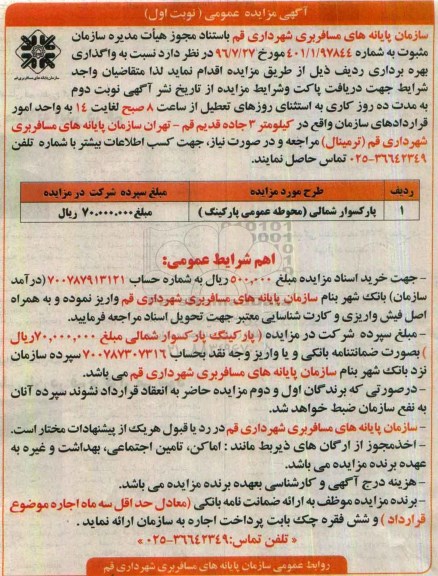 آگهی مزایده عمومی ( نوبت اول)
سازمان پایانه های مسافربری شهرداری قم
سازمان پایانه های مسافربری شهرداری قم باستناد مجوز هیأت مدیره سازمان
مثبوت به شماره ۴۰۱/۱/۹۷۸۴۴ مورخ ۹۶/۷/۲۷ در نظر دارد نسبت به واگذاری
بهره برداری ردیف ذیل از طریق مزایده اقدام نماید لذا متقاضیان واجد
شرایط جهت دریافت پاکت وشرایط مزایده از تاریخ نشر آگهی نوبت دوم
به مدت ده روز کاری به استثنای روزهای تعطیل از ساعت ۸ صبح لغایت ۱۴ به واحد امور
قراردادهای سازمان واقع در کیلومتر ۳ جاده قدیم قم - تهران سازمان پایانه های مسافربری
شهرداری قم (ترمینال) مراجعه و در صورت نیاز، جهت کسب اطلاعات بیشتر با شماره تلفن
۰۲۵-۳۶۶۴۲۳۴۹ تماس حاصل نمایند.
ردیف طرح مورد مزایده مبلغ سپرده شرکت در مزایده
۱ پارکسوار شمالی (محوطه عمومی پارکینگ ) مبلغ ۷۰.۰۰۰.۰۰۰ ریال
اهم شرایط عمومی:
- جهت خرید اسناد مزایده مبلغ ۵۰۰,۰۰۰ ریال به شماره حساب ۷۰۰۷۸۷۹۱۳۱۲۱ (درآمد
سازمان) بانک شهر بنام سازمان پایانه های مسافربری شهرداری قم واریز نموده و به همراه
اصل فیش واریزی و کارت شناسایی معتبر جهت تحویل اسناد مراجعه فرمایید.
- مبلغ سپرده شرکت در مزایده ( پارکینگ پارکسوار شمالی مبلغ ۷۰,۰۰۰,۰۰۰ ریال
) بصورت ضمانتنامه بانکی و یا واریز وجه نقد بحساب ۷۰۰۷۸۷۳۰۷۳۱۶ سپرده سازمان
نزد بانک شهر بنام سازمان پایانه های مسافربری شهرداری قم می باشد.
- درصورتی که برندگان اول و دوم مزایده حاضر به انعقاد قرارداد نشوند سپرده آنان
به نفع سازمان ضبط خواهد شد.
- سازمان پایانه های مسافربری شهرداری قم در رد یا قبول هریک از پیشنهادات مختار است.
- اخذ مجوز از ارگان های ذیربط مانند : اماکن، تامین اجتماعی، بهداشت و غیره به
عهده برنده مزایده می باشد.
- هزینه درج آگهی و کارشناسی بعهده برنده مزایده می باشد.
- برنده مزایده موظف به ارائه ضمانت نامه بانکی (معادل حداقل سه ماه اجاره موضوع
قرارداد ) و شش فقره چک بابت پرداخت اجاره به سازمان ارائه نماید .
« تلفن تماس: ۳۶۶۴۲۳۴۹-۰۲۵ »
روابط عمومی سازمان پایانه های مسافربری شهرداری قم